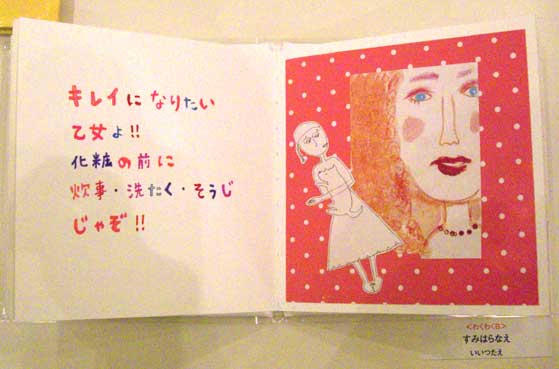 キレイになりたい
乙女よ!!
化粧の前に
炊事・洗たく・そうじ
じゃぞ!!
<わくわくB>
すみはらなえ
いいつたえ